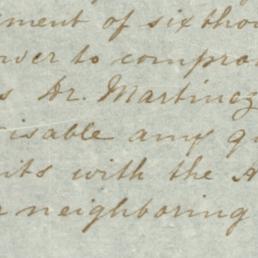 ment of six thou
wer to compro
s Dr. Martinez
isable any q
its with the A
neighboring